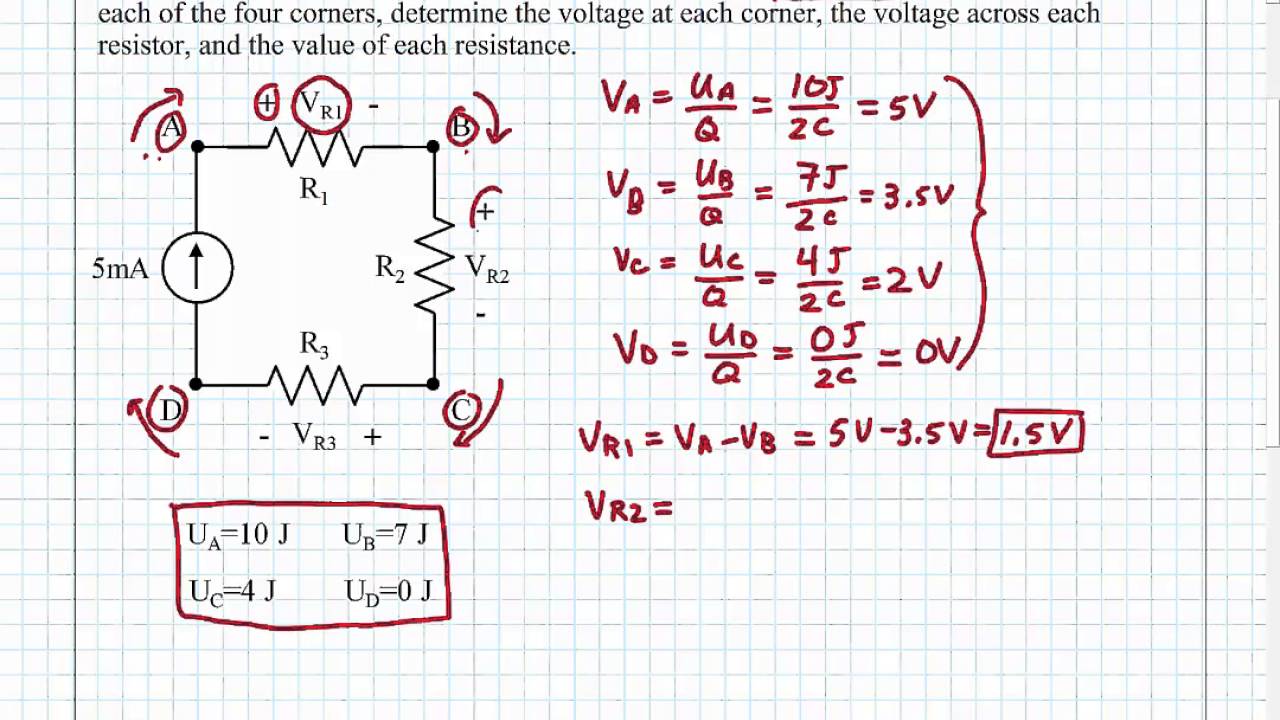 each of the four corners, determine the voltage at each corner, the voltage across each
resistor, and the value of each resistance.
A + V_R1 - B
R_1
+
5mA R_2 V_R2
-
R_3
D - V_R3 + C
U_A=10 J U_B=7 J
U_C=4 J U_D=0 J
V_A = U_A/Q = 10J/2C = 5V
V_B = U_B/Q = 7J/2C = 3.5V
V_C = U_C/Q = 4J/2C = 2V
V_D = U_D/Q = 0J/2C = 0V
V_R1 = V_A - V_B = 5V - 3.5V = 1.5V
V_R2 =